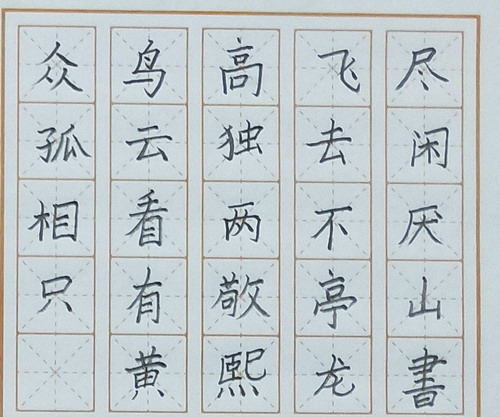 众鸟高飞尽
孤云独去闲
相看两不厌
只有敬亭山
黄熙龙書